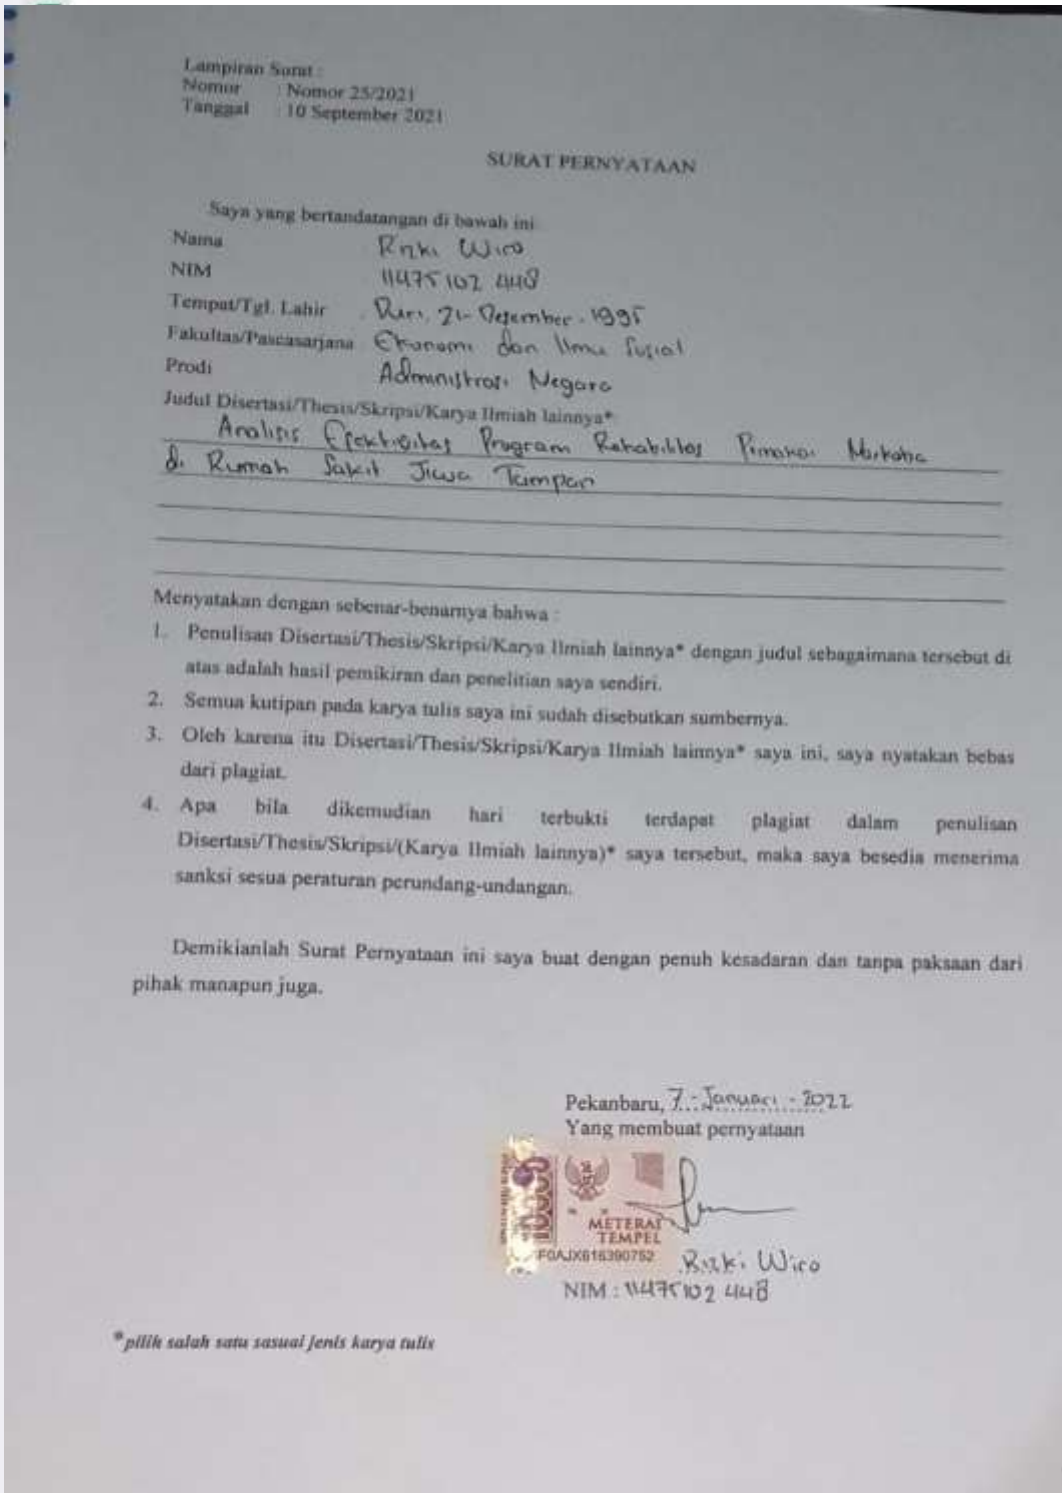 Lampiran Surat :
Nomor : Nomor 25/2021
Tanggal : 10 September 2021
SURAT PERNYATAAN
Saya yang bertandatangan di bawah ini:
Nama Rizki Wiro
NIM 11475102448
Tempat/Tgl. Lahir : Duri, 21 - Desember - 1995
Fakultas/Pascasarjana Ekonomi dan Ilmu Sosial
Prodi Administrasi Negara
Judul Disertasi/Thesis/Skripsi/Karya Ilmiah lainnya*:
Analisis Efektivitas Program Rehabilitas Pemakai Narkoba
di Rumah Sakit Jiwa Tampan
Menyatakan dengan sebenar-benarnya bahwa :
1. Penulisan Disertasi/Thesis/Skripsi/Karya Ilmiah lainnya* dengan judul sebagaimana tersebut di
atas adalah hasil pemikiran dan penelitian saya sendiri.
2. Semua kutipan pada karya tulis saya ini sudah disebutkan sumbernya.
3. Oleh karena itu Disertasi/Thesis/Skripsi/Karya Ilmiah lainnya* saya ini, saya nyatakan bebas
dari plagiat.
4. Apa bila dikemudian hari terbukti terdapat plagiat dalam penulisan
Disertasi/Thesis/Skripsi/(Karya Ilmiah lainnya)* saya tersebut, maka saya besedia menerima
sanksi sesua peraturan perundang-undangan.
Demikianlah Surat Pernyataan ini saya buat dengan penuh kesadaran dan tanpa paksaan dari
pihak manapun juga.
Pekanbaru, 7 - Januari - 2022
Yang membuat pernyataan
METERAI
TEMPEL
F0AJX616390752
Rizki Wiro
NIM : 11475102448
*pilih salah satu sasuai jenis karya tulis